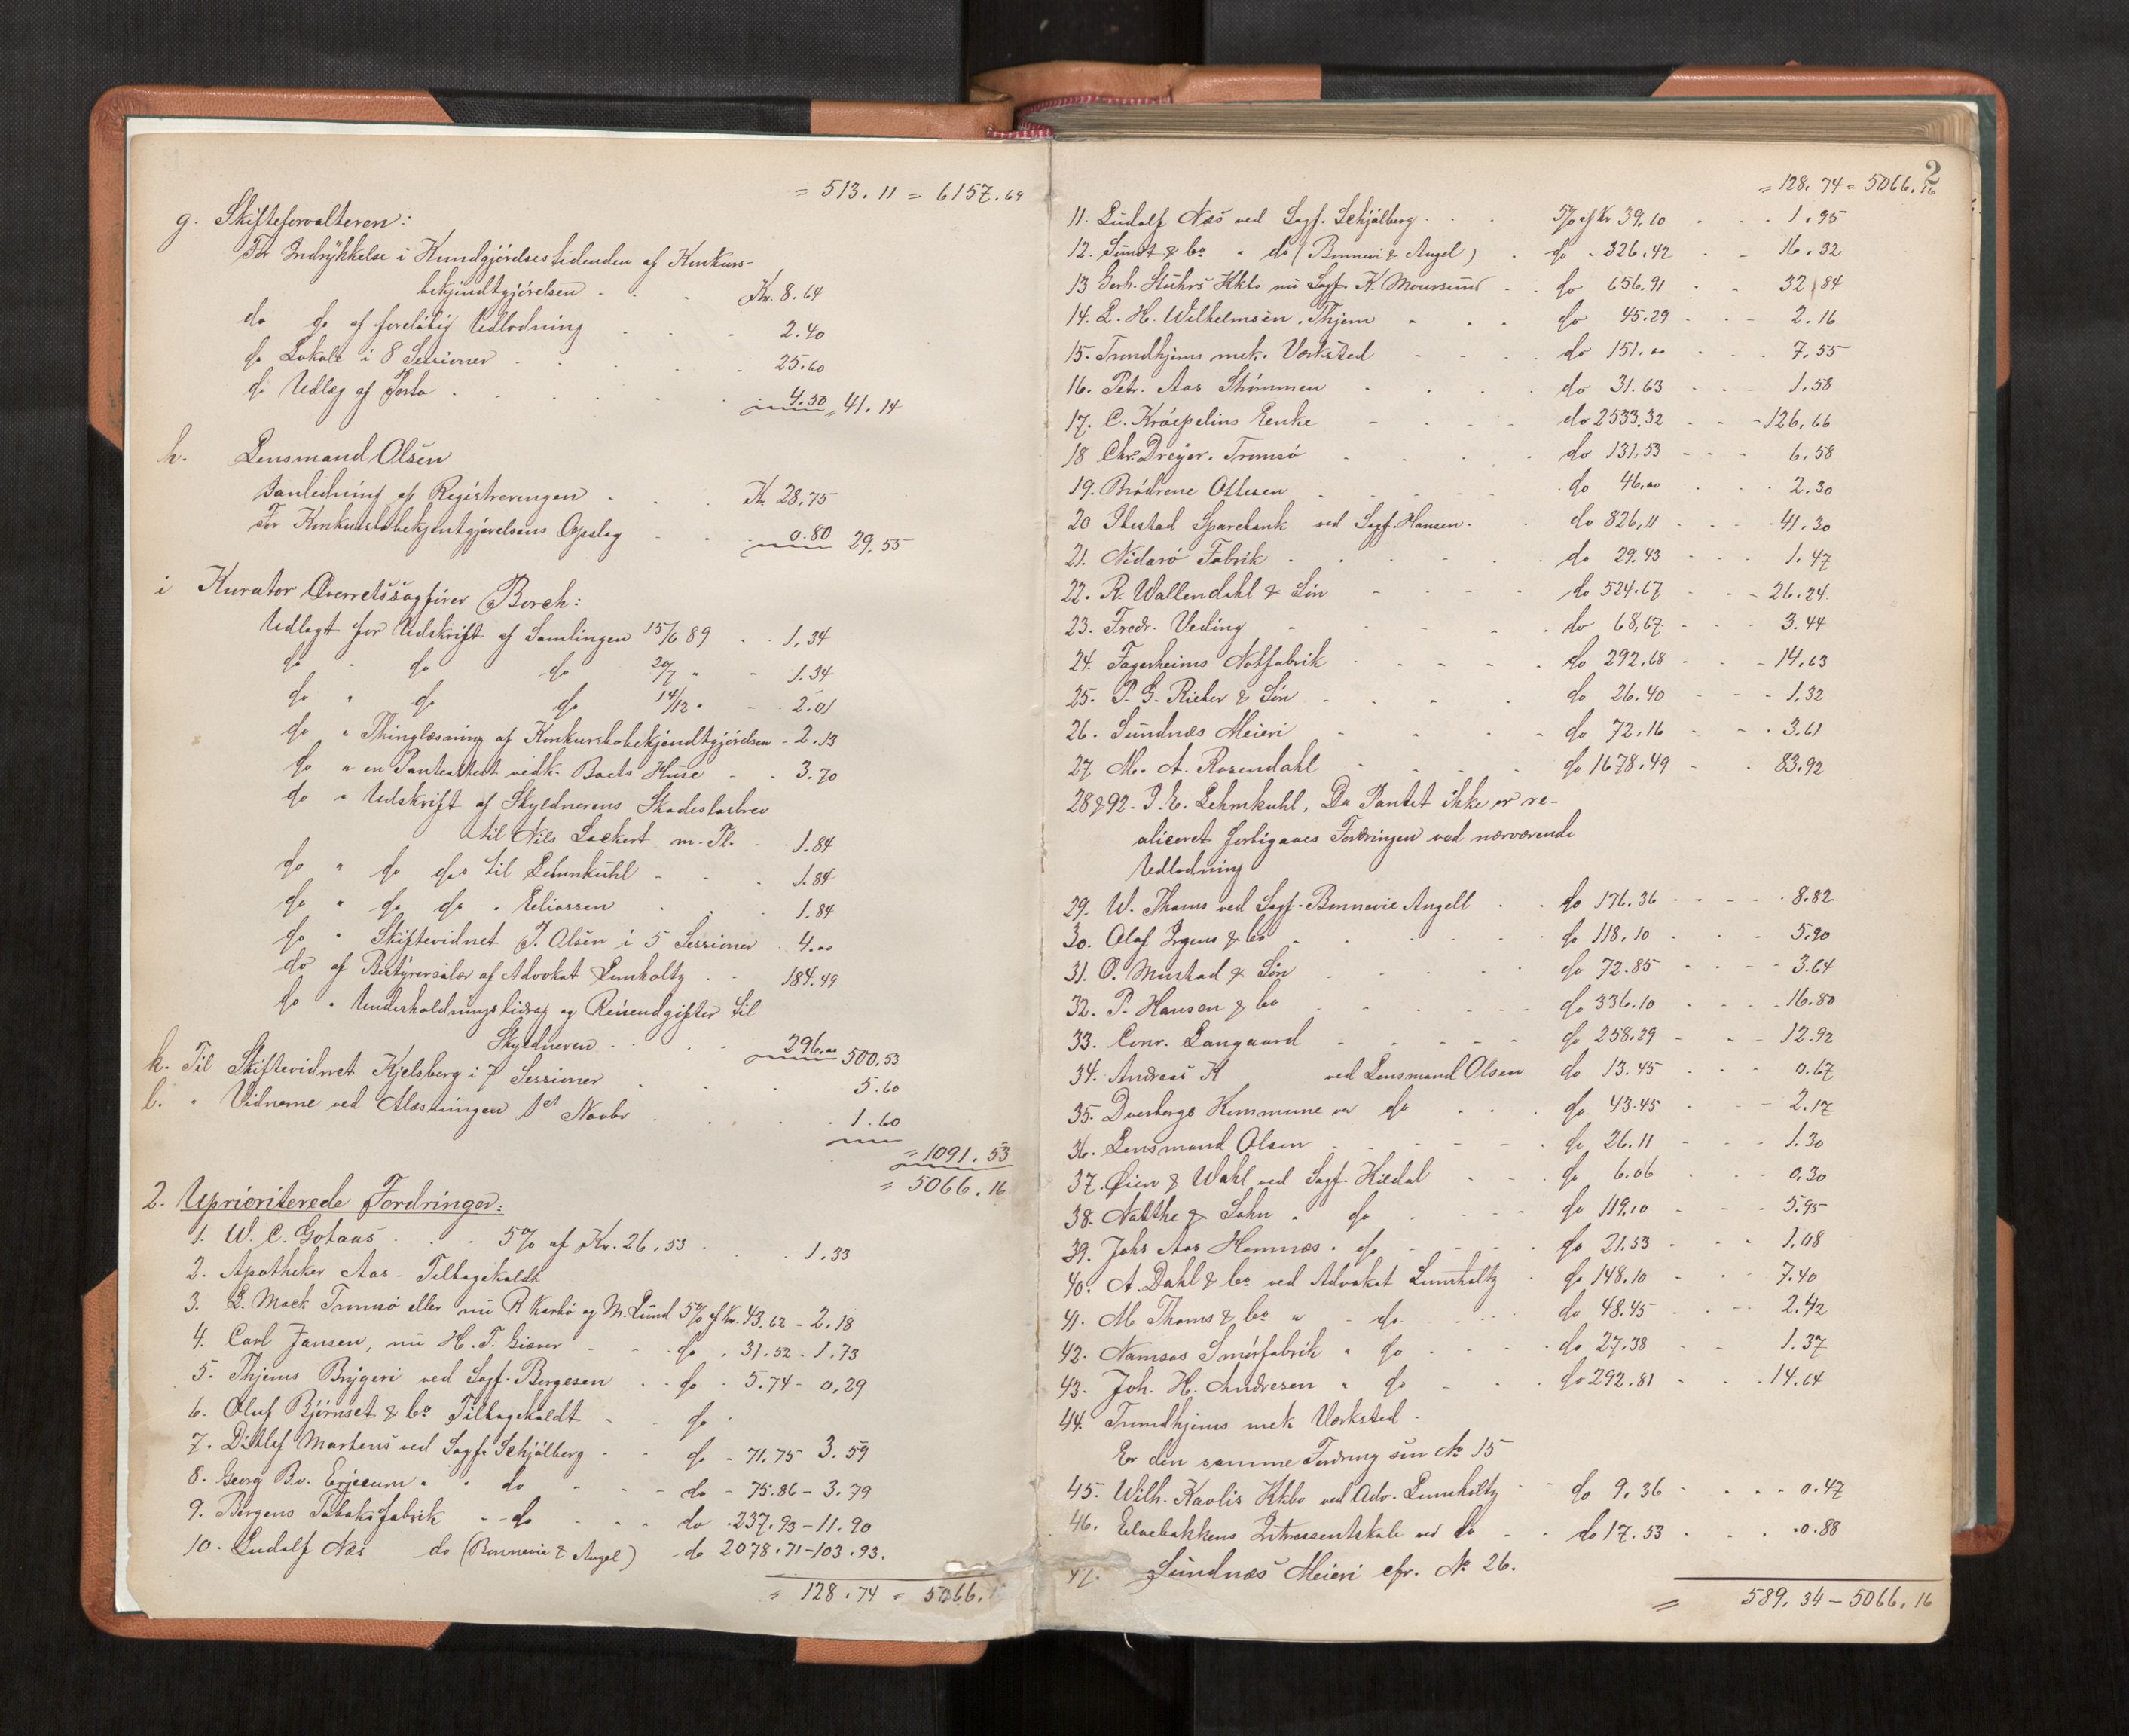 = 513.11 = 6157.69
g. Skifteforvalteren:
For Indrykkelse i Kundgjörelsestidenden af Konkurs-
bekjendtgjörelsen - - Kr. 8.64
do do af foreløbig Udlodning - - - 2.40
do Lokale i 8 Sessioner - - - 25.60
do Udlæg af Porto - - - 4.50 = 41.14
h. Lensmand Olsen
Ianledning af Registreringen - - Kr 28,75
For Konkursbobekjentgjørelsens Opslag - - 0.80 29.55
i Kurator Overretssagfører Borch:
Udlagt for Udskrift af Samlingen 15/6 89 - - 1.34
do - do do 20/7 " - 1.34
do " do do 14/12 " - 2.01
do " Thinglæsning af Konkursbobekjendtgjörelsen - 2.13
do " en Panteattest vedk. Boets Huse - - 3.70
do " Udskrift af Skyldnerens Skadesløsbrev
til Nils Lockert m. Fl. - 1.84
do " do do til Lehmkuhl - - - 1.84
do " do do " Eeliassen - - - 1.84
do " Skiftevidnet J. Olsen i 5 Sessioner - 4.00
do af Bestyrersalær af Advokat Lumholtz - - 184.49
do " Underholdningsbidrag og Reiseudgifter til
Skyldneren - - - 296.00 500.53
k. Til Skiftevidnet Kjelsberg i 7 Sessioner - - - 5.60
l. " Vidnerne ved Aflæsningen 1st Novbr - - - 1.60
= 1091.53
= 5066.16
2. Uprioriterede Fordringer:
1. W. C. Gotaas - - - 5% af Kr. 26,53 - - 1.33
2. Apotheker Aas - Tilbagekaldt
3. L. Mack Tromsø eller nu R Karbö og M. Lund 5% af Kr. 43.62 - 2.18
4. Carl Jansen, nu H. T. Giæver - - do " 31.52 - 1.73
5. Thjems Bryggeri ved Sagf. Borgesen - - do - 5.74 - 0,29
6. Oluf Bjørnset & Co Tilbagekaldt - - do -
7. Ditlef Martens ved Sagf. Schjölberg - - do - 71.75 3.59
8. Georg B.v. " " do - - - do - 75.86 - 3.79
9. Bergens Tobaksfabrik - - do - - - do - 237.93 - 11.90
10. Ludolf Næs do (Bonnevie & Angel) do 2078.71 - 103.93.
= 128.74 = 5066.
2
= 128.74 = 5066.16
11. Ludolf Næs ved Sagf. Schjölberg - - - 5% af Kr 39.10 - - - 1.95
12. Sundt & Co " do (Bonnevie & Angel) - do - 326.42 - - 16.32
13 Gerh. Stuhrs Hkbo nu Sagf. K. Moursund - - do 656.91 - - 32.84
14. L. H. Wilhelmsen, Thjem - - - do 45.29 - - - 2.16
15. Trondhjems mek. Værksted - - - do 151.00 - - - 7,55
16. Petr. Aas Strömmen - - - do 31.63 - - - 1.58
17. C. Kröepelins Enke - - - do 2533.32 - - - 126,66
18 Chr. Dreyer. Tromsö - - - do 131,53 - - - 6.58
19. Brödrene Ottesen - - - do 46.00 - - - 2.30
20 Ibestad Sparebank ved Sagf. Hansen - - do 826,11 - - - 41.30
21. Nidarö Fabrik - - - do 29.43 - - - 1.47
22. R. Wallendahl & Sön - - - do 524.67 - - - 26.24.
23. Fredr. Veding - - - do 68,67 - - - 3.44
24. Fagerheims Notfabrik - - - do 292.68 - - - 14,63
25. P. G. Rieber & Sön - - - do 26.40 - - - 1.32
26. Sundnæs Meieri - - - do 72.16 - - - 3.61
27 M. A. Rosendahl - - - do 1678.49 - - 83.92
28 & 92 - J. E. Lehmkuhl, Da Pantet ikke er re-
aliseret forbigaaes Fordringen ved nærværende
Udlodning
29. W. Thams ved Sagf. Bonnevie Angell - - do 176.36 - - - 8.82
30. Olaf Irgens & Co - - - do 118,10 - - - 5.90
31. O. Mustad & Sön - - - do 72.85 - - - 3.64
32. P. Hansen & Co - - - do 336.10 - - - 16.80
33. Conr. Langaard - - - do 258.29 - - - 12.92
34. Andreas K ved Lensmand Olsen do 13.45 - - - 0.67
35. Dverbergs Kommune ved do - - - do 43.45 - - - 2.17
36. Lensmand Olsen - - - do 26.11 - - - 1.30
37. Øien & Wahl ved Sagf. Hildal - - - do 6.06 - - - 0,30
38. & Søhn " do - - - do 119,10 - - - 5.95
39. Johs Aas Hemnæs " do - - - do 21.53 - - - 1,08
40. A. Dahl & Co ved Advokat Lumholtz - do 148.10 - - - 7.40
41. M Thams & Co " - do - - - do 48.45 - - - 2.42
42. Namsos Smörfabrik " do - - - do 27.38 - - 1.37
43. Joh. H. Andresen " do - - - do 292.81 - - - 14.64
44. Trondhjems mek Værksted -
Er den samme Fordring sum No 15
45. Wilh. Kavlis Hkbo ved Adv. Lumholtz - - do 9.36 - - - 0.47
46. Elvebakkens Intressentskab ved do - - do 17.53 - - - 0.88
47. Sundnæs Meieri cfr. No 26.
= 589.34 - 5066.16